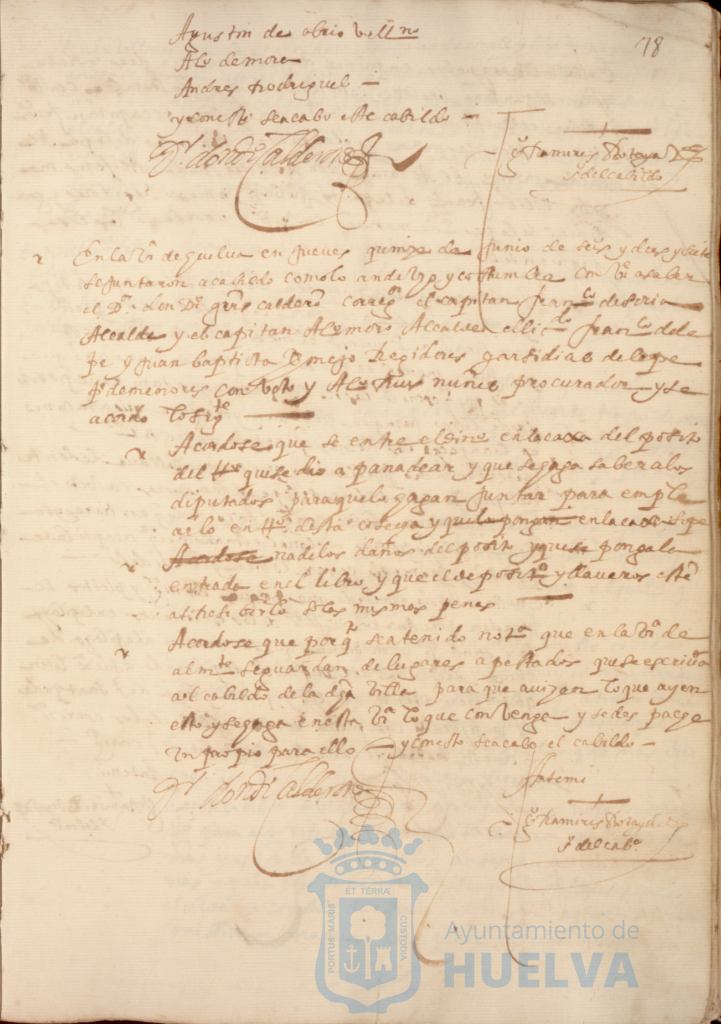 Agustin de obrio
Alº de mora
Andres Rodriguez
y conesto se acabo este cabildo
78
Dr don dº Calderon
Ramires
sº del cabildo
En la Vª de guelva en jueves quinze de Junio de seis y dies y siete
se juntaron a cabildo como lo an de uso y costumbre conbª a saber
el Dr. don Dº Calderon correg.or el capitan franco de soria
Alcalde y el capitan Alº moro Alcalde el licdo franco de le
pe y Juan baptista Regidores garsidias de lepe
de menores con voto y Alº Ruis nuñes procurador y se
acordo lo sigte
Acordose que se entre el dinº en la caxa del posito
del que se dio a panadear y que se haga saber a los
diputados para que lo hagan juntar para emple
arlo en desta cosecha y que lo pongan en la caxa so pe
Acordose na de los daños del posito y que se ponga la
entrada en el libro y que el deposito y llaveros esten
a so las mismas penas
Acordose que porq se a tenido notª que en la Vª de
almte se guardan de lugares apestados que se escriva
al cabildo de la dha villa para que avizen lo que ay en
esto y se haga en esta Vª lo que convenga y se despache
un propio para ello y conesto se acabo el cabildo
Dr don dº Calderon
Ante mi
Ramires
sº del cabº
ET TERRÆ
PORTUS MARIS
CUSTODIA
Ayuntamiento de
HUELVA